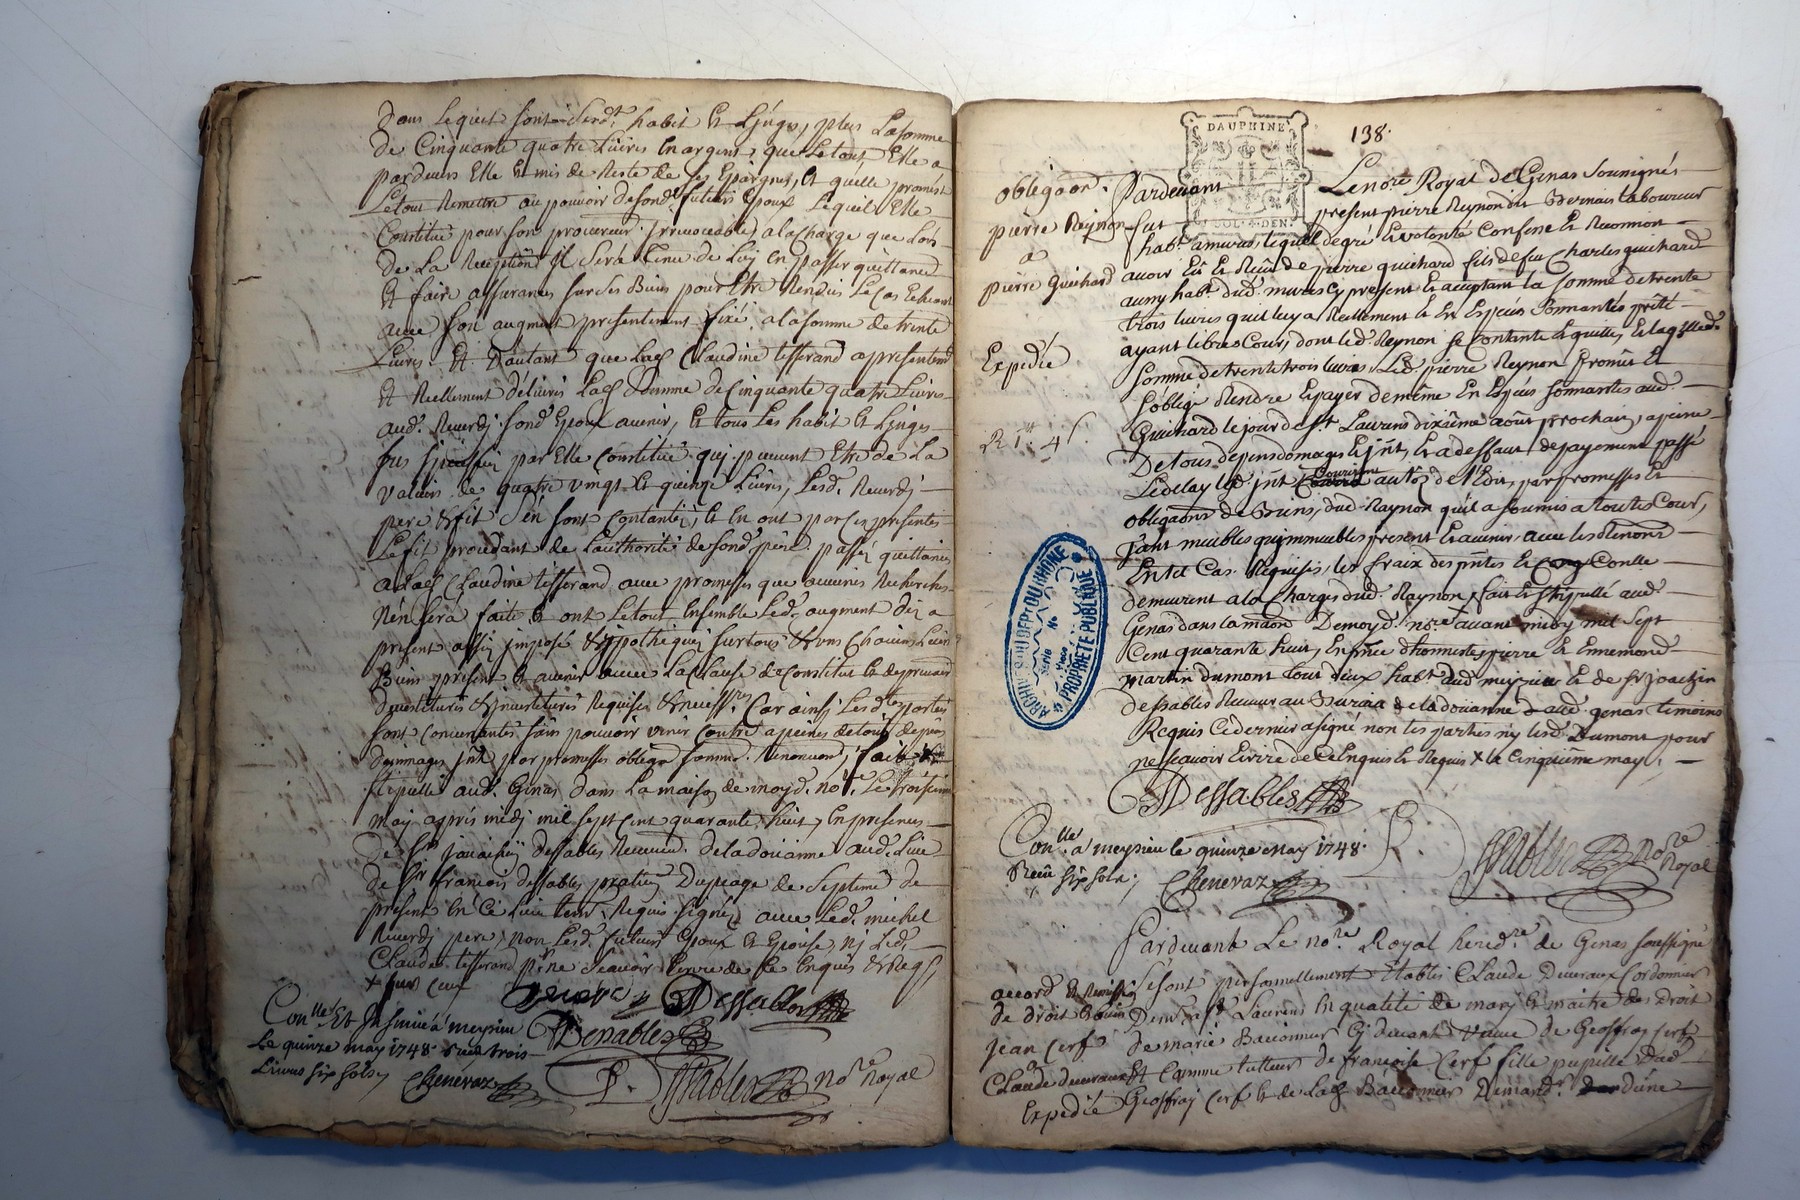 dans lequel sont sesd.ts habit et Linges, plus La somme
de Cinquante quatre Livres en argent, que Le tout Elle a
pardevers Elle et mis de Reste de ses Epargnes, et quelle promest
Le tout Remettre au pouvoir de sond. futeur Epoux Lequel Elle
Constitue pour son procureur Irrevocable, a la charge que Lors
de La Reception Il sera Tenu de Luy en passer quittance
Et faire assurances sur ses Biens pour Etre Rendus Le Cas Echeant
avec son augment presentement fixé a la somme de trente
Livres Et D'autant que Lad. Claudine tisserand a presentement
Et Reellement délivré Lad. Somme de Cinquante quatre Livres
aud. Reverdj sond. Epoux avenir, et Tous Les habit et Linges
sus par Elle Constitué qui peuvent Etre de La
valeur de quatre vingt et quinze Livres, Lesd. Reverdj
pere & fil s'en sont contantés, et en ont par ces presentes
Le fil procedant de L'authorité de sond. pere passé quittance
a Lad. Claudine tisserand avec promesses que aucunes Recherches
N'en sera faite et ont Le tout Ensemble Led. augment dez a
present assis imposé & ypothequé sur tous & uns Chacuns Leurs
Biens present et avenir avec La Clause de Constitut et de precaire
devestitures & investitures Requises & necess.res Car ainsi Lesd.tes parties
sont Convenantes sans pouvoir venir Contre a peines de tous depens
dommages jnt. par promesses obliga.on soumis. Renoncaon, fait &
stipullé aud. Genas dans La maison de moyd. no.re Le troisieme
may apres midj mil sept cent quarante huit, En presences
de Sr. Joachin Dessables Receveur de la doüanne aud. Lieu
de Sr. françois dessables du peage de Septeme de
present en Ce Lieu tem. Requis signés avec Led. michel
Reverdj pere, non Lesd. futeurs Epoux et Epouse, nj Led.
Claude tisserand p.r ne sçavoir Ecrire de Ce Enquis & Req.
Dessables
Con.lle Et Insinué a meysieu
Le quinze may 1748. Reçû trois
Livres six sols
Chenevaz
Dessables
P. Sablier no.re Royal
DAUPHINÉ
138.
obligaon.
pierre Reynon
a
pierre Guichard
Expedié
R 1.tt 4 s.
Pardevant Le no.re Royal de Genas Soussigné
fut present pierre Reynon dit Bernait Laboureur
hab.t a mures, lequel de gré et volonté Confesse et Reconnoit
avoir Eü et Reçû de pierre guichard fils de feu Charles guichard
auny hab.t dud. mures cy present et acceptant la somme de trente
trois livres quil luy a Reellement et En Espéces Sonnantes preté
ayant libres Cour, dont led. Reynon se Contante et quitte, et laquelled.
somme de trente trois livres, Led. pierre Reynon promis et
s'oblige Rendre et payer de même En Espéces sonnantes aud.
Guichard le jour de S.t Laurens dixiême aoüst prochain, apeine
De tous depens domages et jnt, et a deffaut de payement passé
Le delay led. jnt Courirons autôz de l'Edit, par promesses et
obligaons de Biens, dud. Raynon quil a soumis a toutes Cour,
Tant meubles quimmeubles present et avenir, avec les Renons
En tel Cas Requises, les fraix des pntes et Conlle
demeurent a la Charges dud. Raynon, fait et stippullé aud.
Genas dans la maison De moyd. no.re avant midy mil Sept
Cent quarante huit, En pnce d'honnestes pierre et Ennemond
martin dumont tout deux hab.t aud meysieu et de Sr joachin
dessables Receveur au Bureau de la doüanne aud. genas temoins
Requis Ce dernier a signé non les parties ny lesd. Dumont pour
ne sçavoir Ecrire de Ce Enquis et Requis x le Cinquième may.
Dessables
Con.lle a meysieu le quinze may 1748.
Reçû six sols.
Chenevaz
P. Sablier no.re Royal
ARCHIVES DU DEP.T DU RHONE
Série
No
Pièce
PROPRIÉTÉ PUBLIQUE
accord et Remission
de droit Entre
Jean Cerf
Et
Claude duveraux
Expedié
Pardevant Le no.re Royal hered.re de Genas soussigné
se sont personnellement Etablis Claude Duveraux Cordonnier
Demt. a St. Laurens En qualité de mary et maitre des droit
de marie Baconnier Cj devant veuve de Geoffray Cerf
Et Comme tutteur de françoise Cerf fille pupille dud.
Geoffray Cerf et de Lad. Baconnier Demand.r d'une